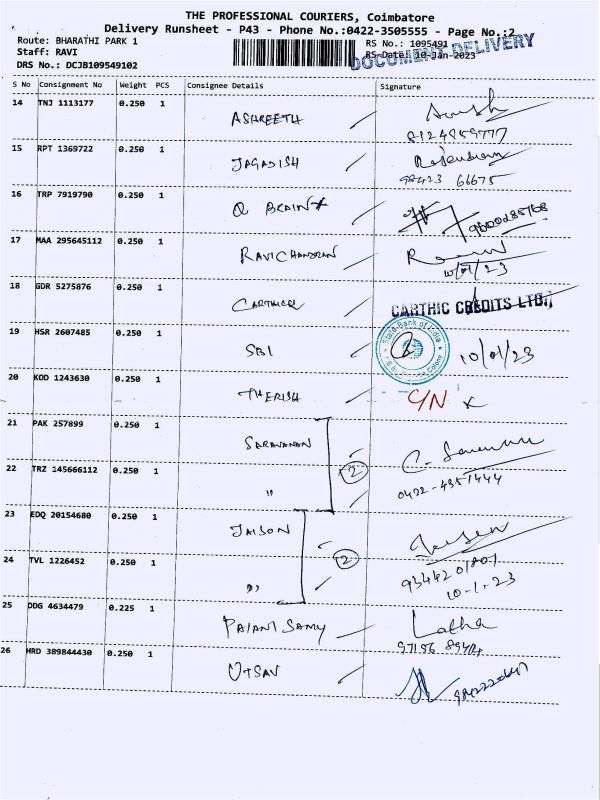 THE PROFESSIONAL COURIERS, Coimbatore
Delivery Runsheet - P43 - Phone No.:0422-3505555 - Page No.:2
Route: BHARATHI PARK 1
RS No.: 1095491
DOCUMENT DELIVERY
Staff: RAVI
RS Date: 10-Jan-2023
DRS No.: DCJB109549102
S No Consignment No Weight PCS Consignee Details Signature
14 TNJ 1113177 0.250 1
ASHREETH
8124959777
15 RPT 1369722 0.250 1
JAGADISH
98423 66675
16 TRP 7919790 0.250 1
Q BRAINX
17 MAA 295645112 0.250 1
RAVICHANDRAN
10/01/23
18 GDR 5275876 0.250 1
CARTHIC CREDITS LTD.,
19 HSR 2607485 0.250 1
State Bank of India
SBI 10/01/23
20 KOD 1243630 0.250 1
THERISH C/N X
21 PAK 257899 0.250 1
SARAVANAN
2
22 TRZ 145666112 0.250 1
" 0422-4351444
23 EDQ 20154680 0.250 1
JAISON
2
24 TVL 1226452 0.250 1
"
10-1-23
25 DDG 4634479 0.225 1
PALANI SAMY Latha
26 HRD 389844430 0.250 1
UTSAV